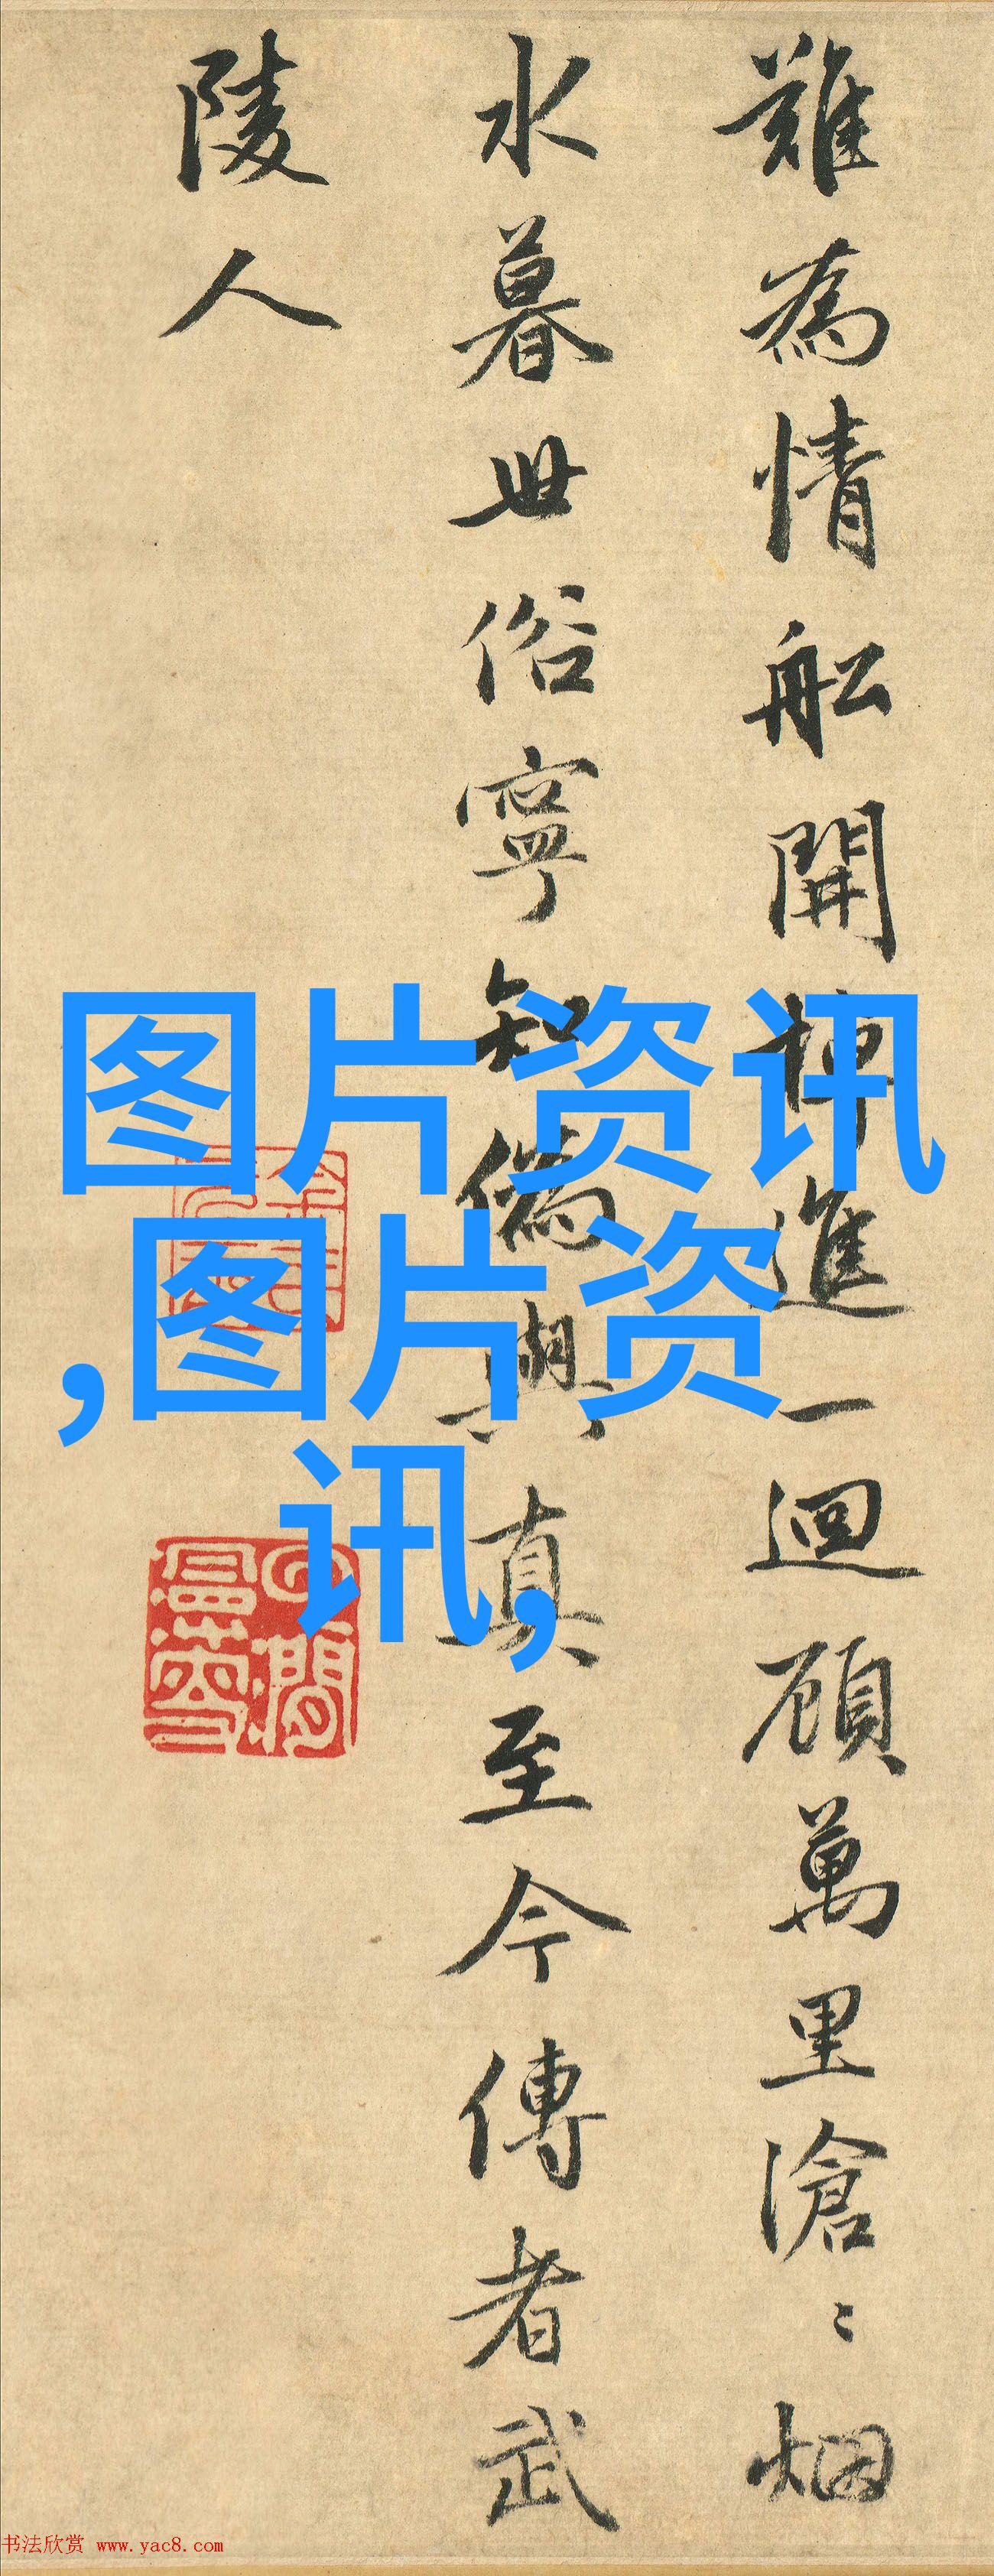 難為情舩開棹進一迴頋萬里滄〻烟
水暮世俗寧知僞與真至今傳者武
陵人
图片资讯
,图片资
讯,
书法欣赏 www.yac8.com